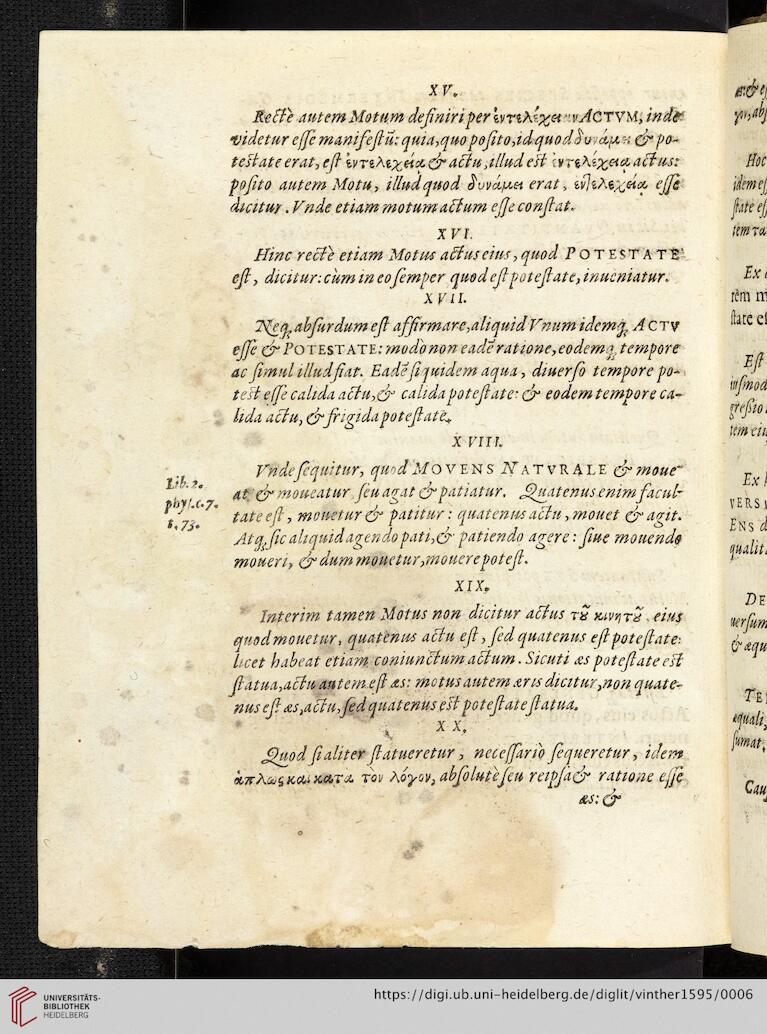 XV.
Rectè autem Motum definiri per ἐντελέχειαν ACTVM, inde
videtur esse manifestũ: quia, quo posito, id quod δυνάμει & po-
testate erat, est ἐντελεχείᾳ & actu, illud est ἐντελέχεια actus:
posito autem Motu, illud quod δυνάμει erat, ἐντελεχείᾳ esse
dicitur. Vnde etiam motum actum esse constat.
XVI.
Hinc rectè etiam Motus actus eius, quod POTESTATE
est, dicitur: cùm in eo semper quod est potestate, inueniatur.
XVII.
Neq; absurdum est affirmare, aliquid Vnum idemq; ACTV
esse & POTESTATE: modò non eadẽ ratione, eodemq; tempore
ac simul illud fiat. Eadẽ siquidem aqua, diuerso tempore po-
test esse calida actu, & calida potestate: & eodem tempore ca-
lida actu, & frigida potestate.
XVIII.
Vnde sequitur, quod MOVENS NATVRALE & moue-
at & moueatur seu agat & patiatur. Quatenus enim facul-
Lib. 2.
phys. c. 7.
t. 73.
tate est, mouetur & patitur: quatenus actu, mouet & agit.
Atq; sic aliquid agendo pati, & patiendo agere: siue mouendo
moueri, & dum mouetur, mouere potest.
XIX.
Interim tamen Motus non dicitur actus τȣ͂ κινητȣ͂, eius
quod mouetur, quatenus actu est, sed quatenus est potestate:
licet habeat etiam coniunctum actum. Sicuti æs potestate est
statua, actu autem est æs: motus autem æris dicitur, non quate-
nus est æs, actu, sed quatenus est potestate statua.
XX.
Quod si aliter statueretur, necessariò sequeretur, idem
ἁπλῶς καὶ κατὰ τὸν λόγον, absolutè seu reipsa & ratione esse
æs: &
UNIVERSITÄTS-
BIBLIOTHEK
HEIDELBERG
https://digi.ub.uni-heidelberg.de/diglit/vinther1595/0006